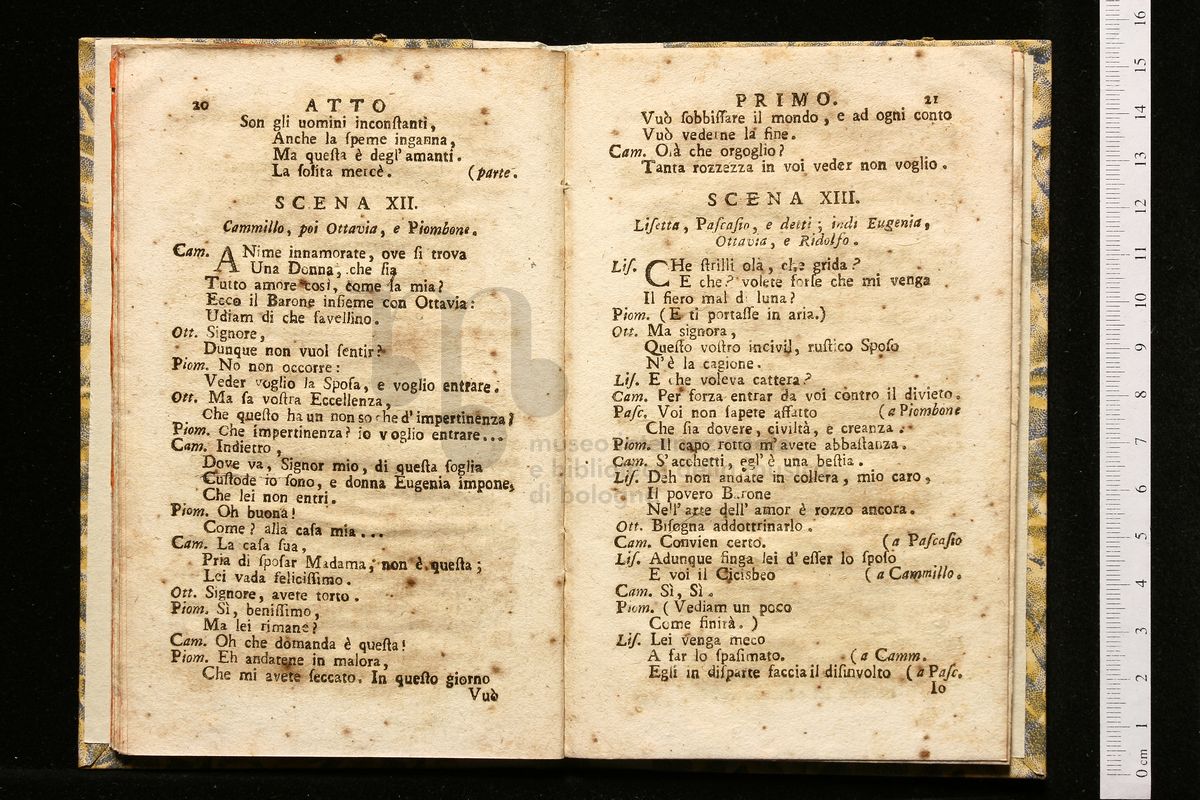 20 ATTO
Son gli uomini inconſtanti,
Anche la ſpeme inganna,
Ma queſta è degl' amanti.
La ſolita mercè. (parte.
SCENA XII.
Cammillo, poi Ottavia, e Piombone.
Cam. ANime innamorate, ove ſi trova
Una Donna, che ſia
Tutto amore così, come la mia?
Ecco il Barone inſieme con Ottavia:
Udiam di che favellino.
Ott. Signore,
Dunque non vuol ſentir?
Piom. No non occorre:
Veder voglio la Spoſa, e voglio entrare.
Ott. Ma ſa voſtra Eccellenza,
Che queſto ha un non so che d'impertinenza?
Piom. Che impertinenza? io voglio entrare...
Cam. Indietro,
Dove va, Signor mio, di queſta ſoglia
Cuſtode io ſono, e donna Eugenia impone,
Che lei non entri.
Piom. Oh buona!
Come? alla caſa mia...
Cam. La caſa ſua,
Pria di ſpoſar Madama, non è queſta;
Lei vada feliciſſimo.
Ott. Signore, avete torto.
Piom. Sì, beniſſimo,
Ma lei rimane?
Cam. Oh che domanda è queſta!
Piom. Eh andatene in malora,
Che mi avete ſeccato. In queſto giorno
Vuò
PRIMO. 21
Vuò ſobbiſſare il mondo, e ad ogni conto
Vuò vederne la fine.
Cam. Olà che orgoglio?
Tanta rozzezza in voi veder non voglio.
SCENA XIII.
Liſetta, Paſcaſio, e detti; indi Eugenia,
Ottavia, e Ridolfo.
Liſ. CHe ſtrilli olà, che grida?
E che? volete forſe che mi venga
Il fiero mal di luna?
Piom. (E ti portaſſe in aria.)
Ott. Ma signora,
Queſto voſtro incivil, ruſtico Spoſo
N'è la cagione.
Liſ. E che voleva cattera?
Cam. Per forza entrar da voi contro il divieto.
Paſc. Voi non ſapete affatto (a Piombone
Che ſia dovere, civiltà, e creanza.
Piom. Il capo rotto m'avete abbaſtanza.
Cam. S'acchetti, egl'è una beſtia.
Liſ. Deh non andate in collera, mio caro,
Il povero Barone
Nell'arte dell' amor è rozzo ancora.
Ott. Biſogna addottrinarlo.
Cam. Convien certo. (a Paſcaſio
Liſ. Adunque finga lei d'eſſer lo ſpoſo
E voi il Cicisbeo (a Cammillo.
Cam. Sì, Sì.
Piom. (Vediam un poco
Come finirà.)
Liſ. Lei venga meco
A far lo ſpaſimato. (a Camm.
Egli in diſparte faccia il diſinvolto (a Paſc.
Io
museo
e biblio
di bologna